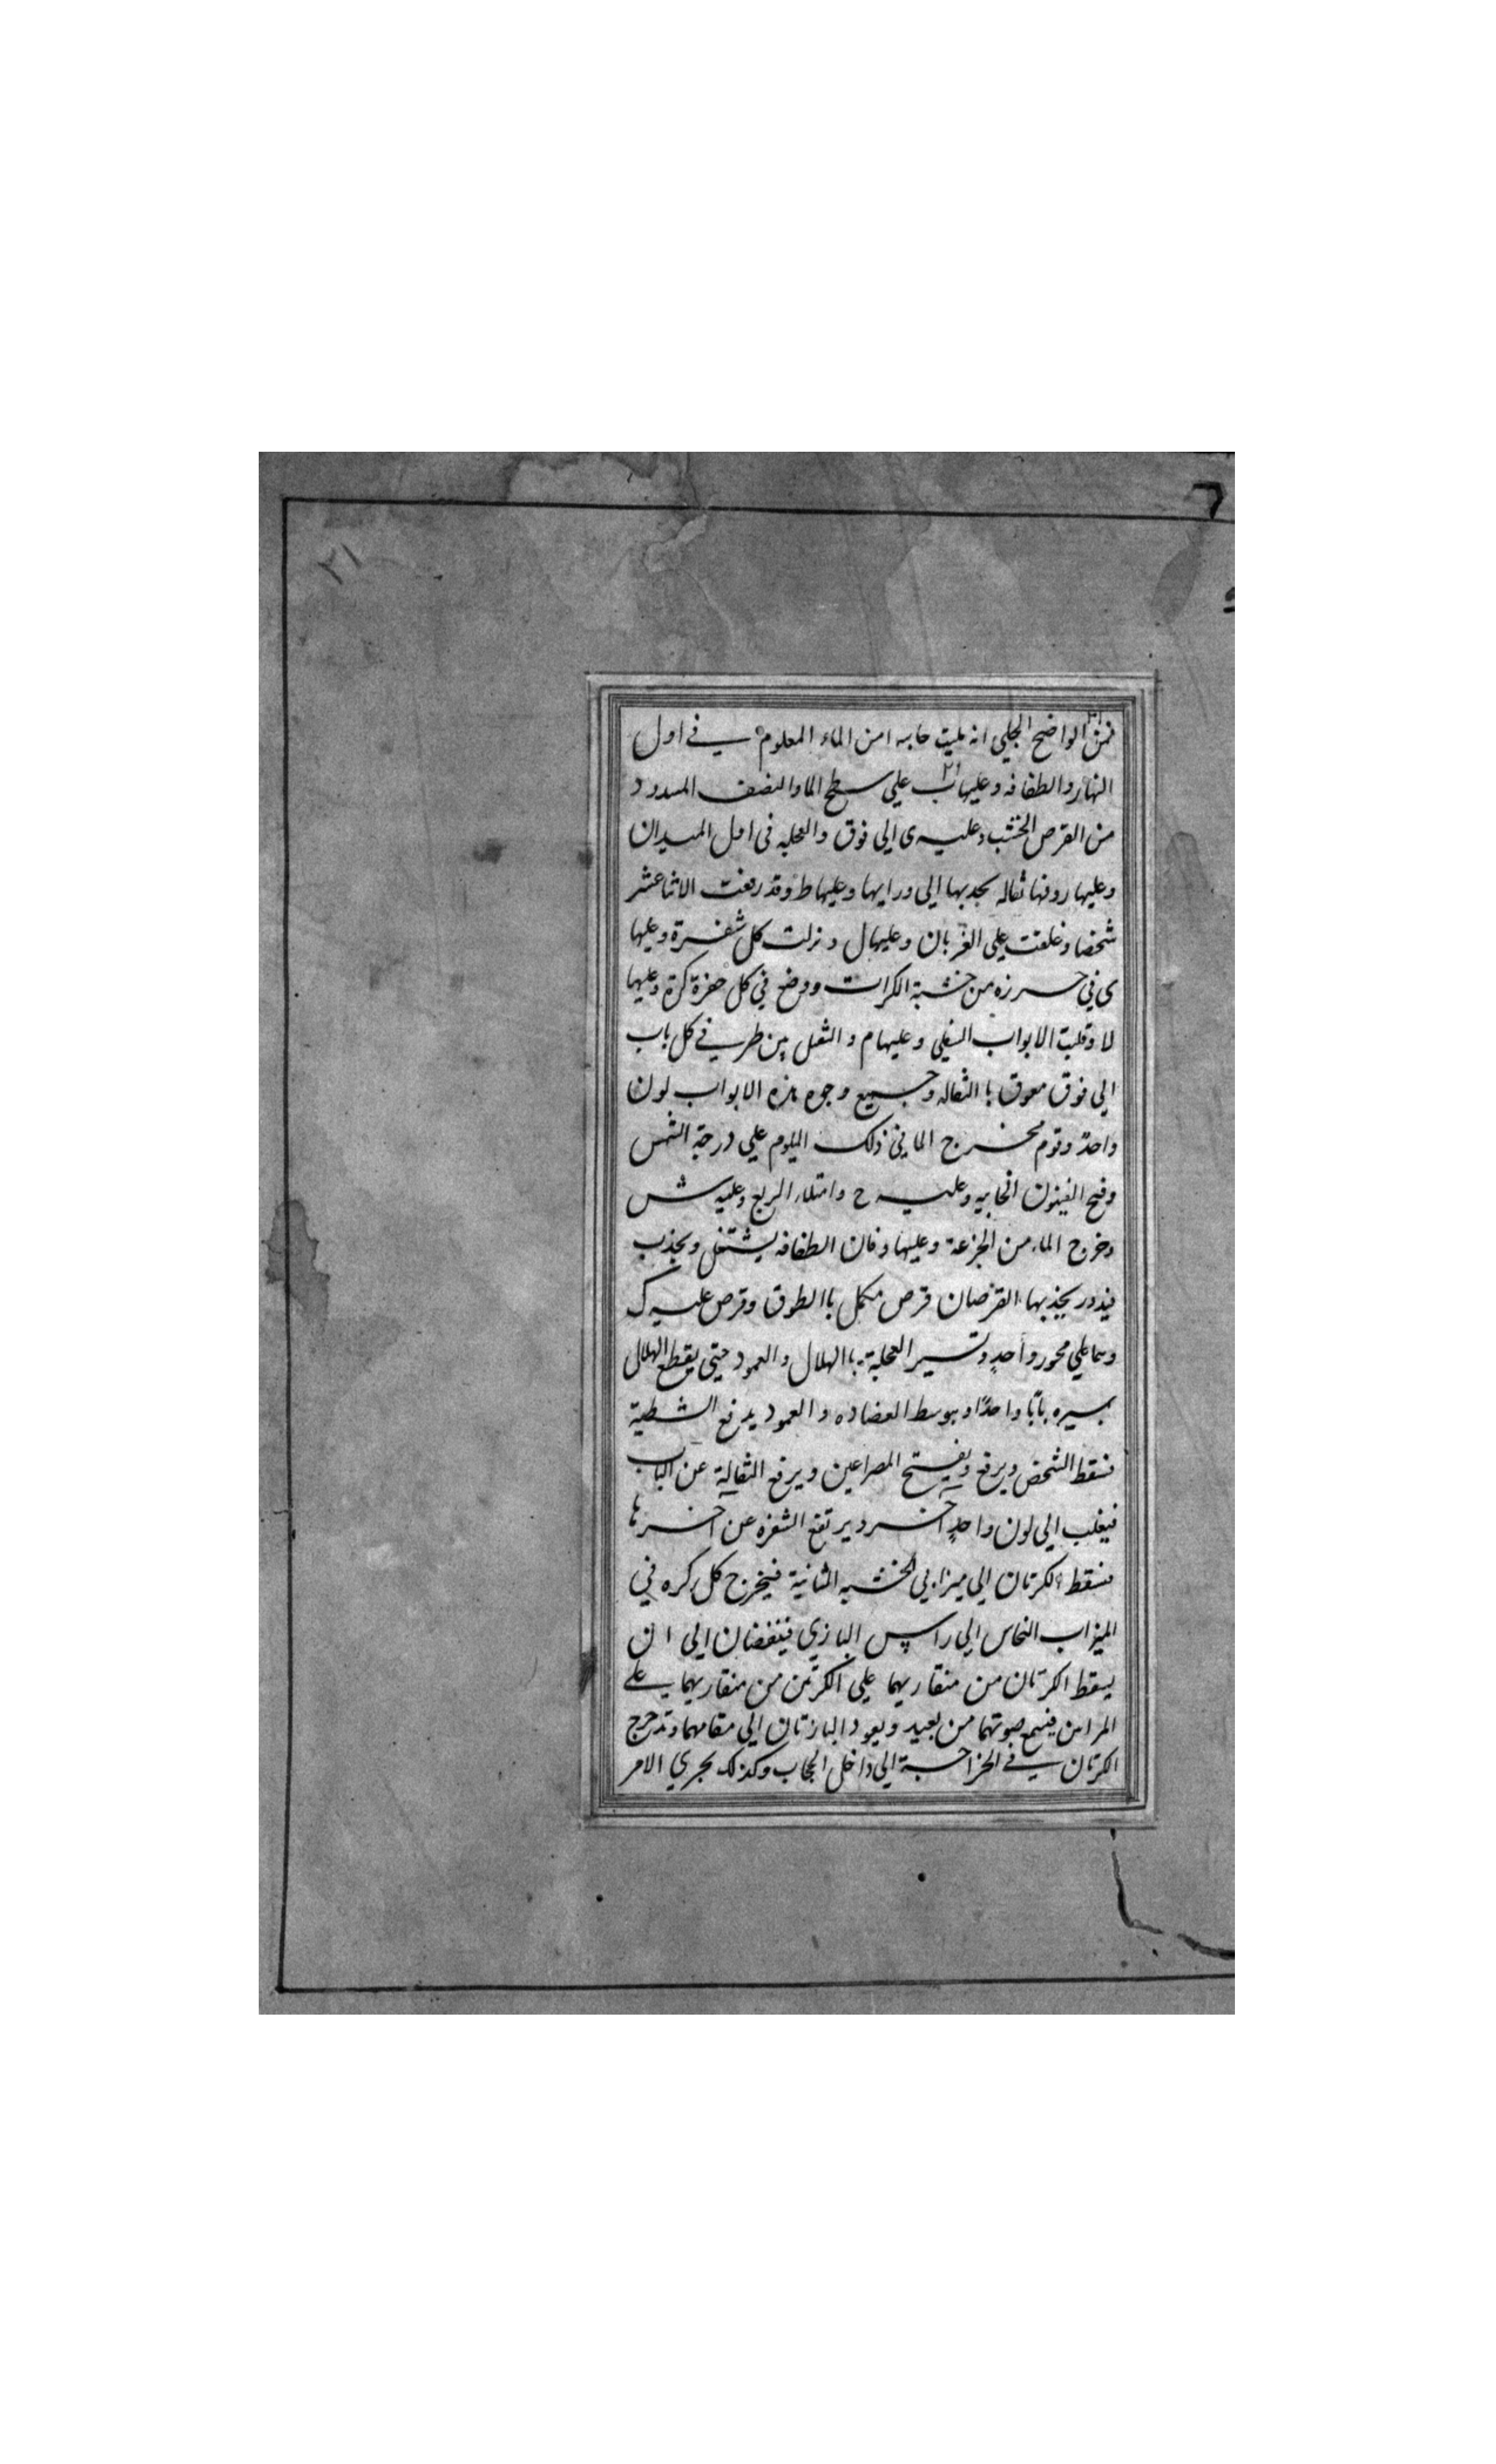 ٢١
فمن الواضح الجلي انه مليت خابيه امن الماء المعلوم في اول
النهار والطفافه وعليها ب علي سطح الما والنصف المسدود
من القرص الخشب وعليه ى الي فوق والعجله في اول الميدان
وعليها روفها ثقاله يجذبها الي ورايها وعليها ط وقد رفعت الاثنا عشر
شخصا وغلقت علي الغربان وعليها ل ونزلت كل شفرة وعليها
ى في حرزه من خشبة الكرات ووضع في كل حفرة كرة وعليها
لا وقلبت الابواب السفلي وعليها م والثقل بين طرفي كل باب
الي فوق معوق با الثقاله وجميع وجوه هذه الابواب لون
واحد وقوم مخرج الما في ذلك اليلوم علي درجة الشمس
وفتح الفيثون الخابيه وعليه ح وامتلاء الربع وعليه ش
وخروج الماء من الجزعة وعليها و فان الطفافه يشتغل ويجذب
فيدور بجذبها القرصان قرص مكمل باالطوق وقرص عليه ك
وهما علي محور واحدٍ وتسير العجلة باالهلال والعمود حتي يقطع الهلال
بسيره بابًا واحدًا وبوسط العضاده والعمود يدفع الشظية
فسقط الشخص ويرفع ويفتح المصراعين ويرفع الثقالة عن الباب
فيغلب الي لون واحدٍ آخر ويرتفع الشفره عن اخرها
فسقط الكرتان الي ميزابي الخشبه الثانية فيخرج كل كره في
الميزاب النحاس الي راس البازي فينفضان الي ان
يسقط الكرتان من منقاريهما علي الكرتين من منقاريهما علي
المراتن فيسمع صوتهما من بعيد ويعود البازتان الي مقامهما وتدحرج
الكرتان في الخزاحبة الي داخل الحجاب وكذلك يجري الامر